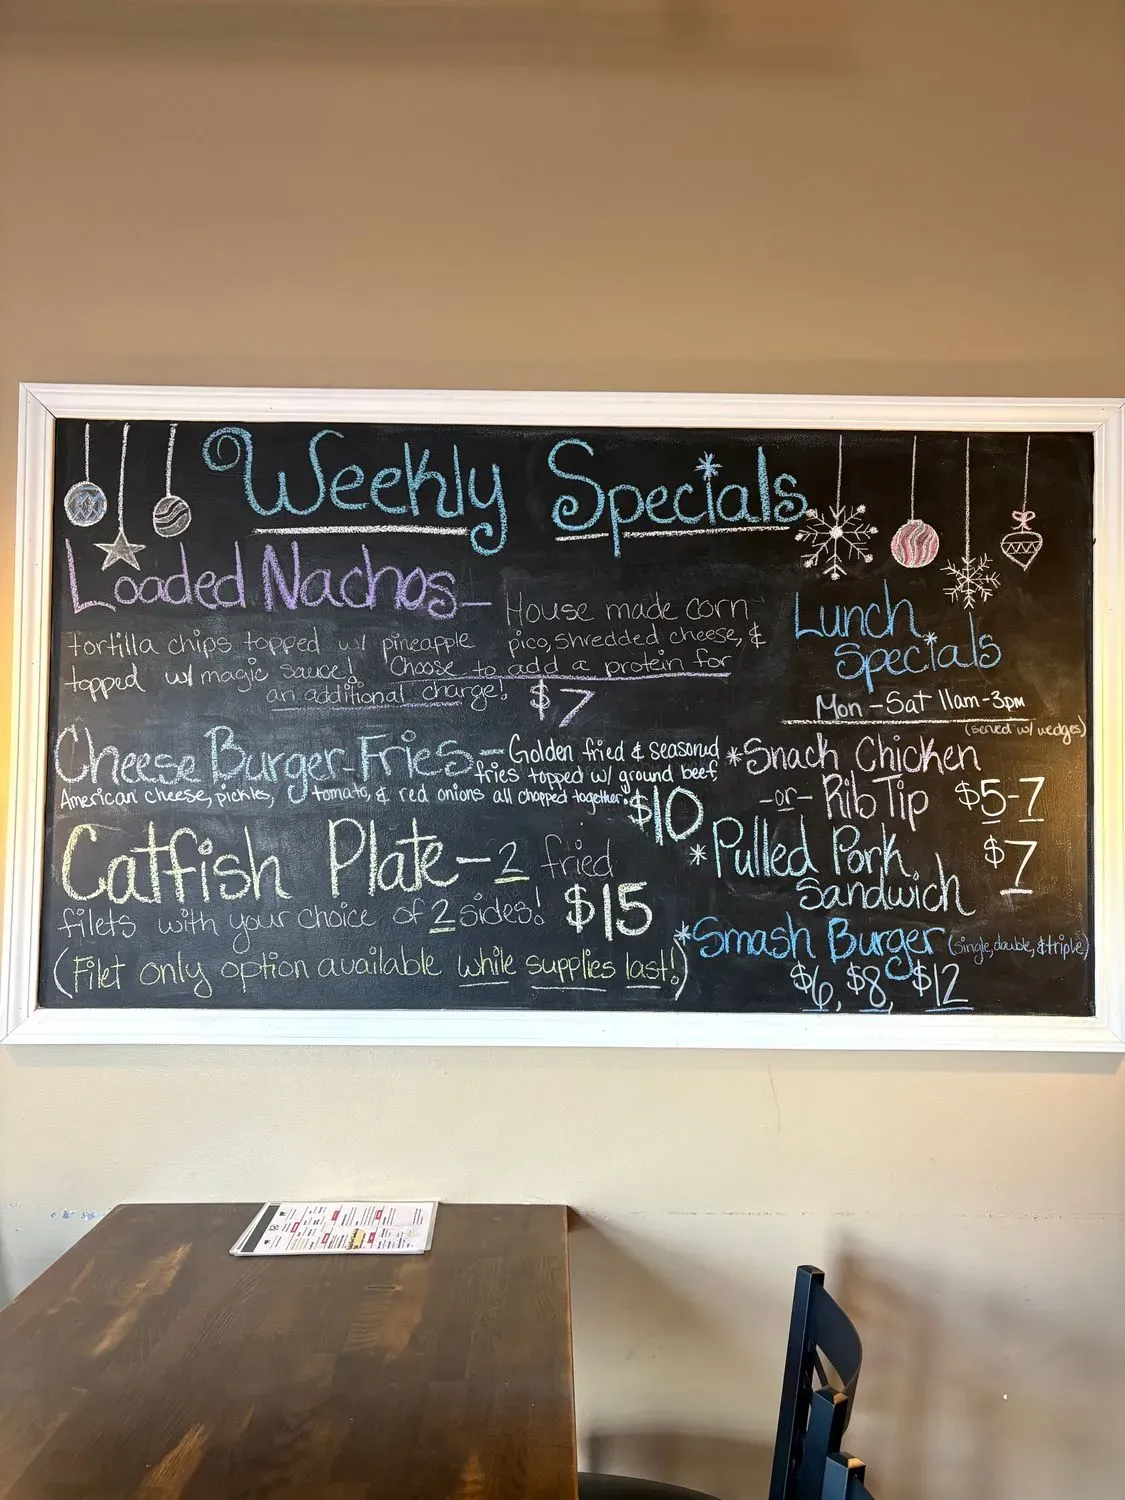 Weekly Specials
Loaded Nachos - House made corn
tortilla chips topped w/ pineapple pico, shredded cheese, &
topped w/ magic sauce! Choose to add a protein for
an additional charge! $7
Cheese Burger-Fries - Golden fried & seasoned
fries topped w/ ground beef,
American cheese, pickles, tomato, & red onions all chopped together. $10
Catfish Plate - 2 fried
filets with your choice of 2 sides! $15
(Filet only option available while supplies last!)
Lunch
Specials
Mon - Sat 11am - 3pm
(served w/ wedges)
*Snack Chicken
-or- Rib Tip $5-7
*Pulled Pork $7
Sandwich
*Smash Burger (single, double, & triple)
$6, $8, $12